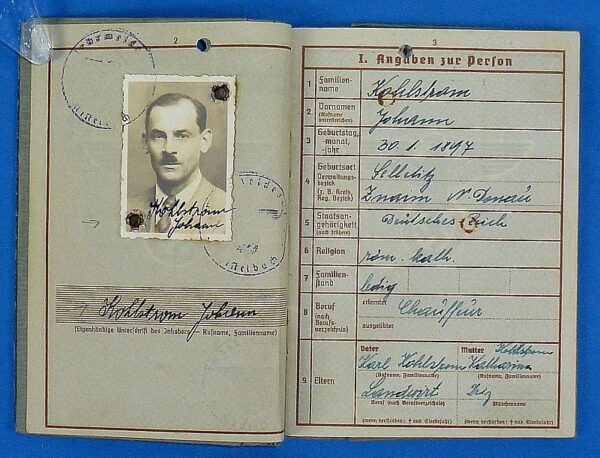 2
Kohlstrom
Johann
Kohlstrom Johann
(Eigenhändige Unterschrift des Inhabers — Rufname, Familienname)
3
I. Angaben zur Person
1 Familienname Kohlstrom
2 Vornamen (Rufname unterstreichen) Johann
3 Geburtstag, -monat, -jahr 30. 1. 1897
4 Geburtsort Selletitz
Verwaltungsbezirk (z. B. Kreis, Reg. Bezirk) Znaim N. Donau
5 Staatsangehörigkeit (auch frühere) Deutsches Reich
6 Religion röm. kath.
7 Familienstand ledig
8 Beruf (nach Berufsverzeichnis) erlernter Chauffeur
ausgeübter
9 Eltern
Vater Mutter Kohlstrom
Karl Kohlstrom Katharina
(Rufname, Familienname) (Rufname, Familienname)
Landwirt
Beruf (nach Berufsverzeichnis) Mädchenname
(wenn verstorben: † und Sterbejahr) (wenn verstorben: † und Sterbejahr)